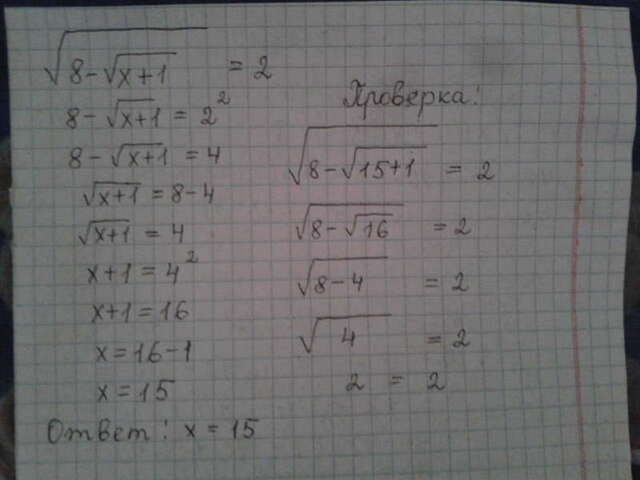 √(8-√(x+1)) = 2
8-√(x+1) = 2²
8-√(x+1) = 4
√(x+1) = 8-4
√(x+1) = 4
x+1 = 4²
x+1 = 16
x = 16-1
x = 15
Ответ: x = 15
Проверка:
√(8-√(15+1)) = 2
√(8-√16) = 2
√(8-4) = 2
√4 = 2
2 = 2